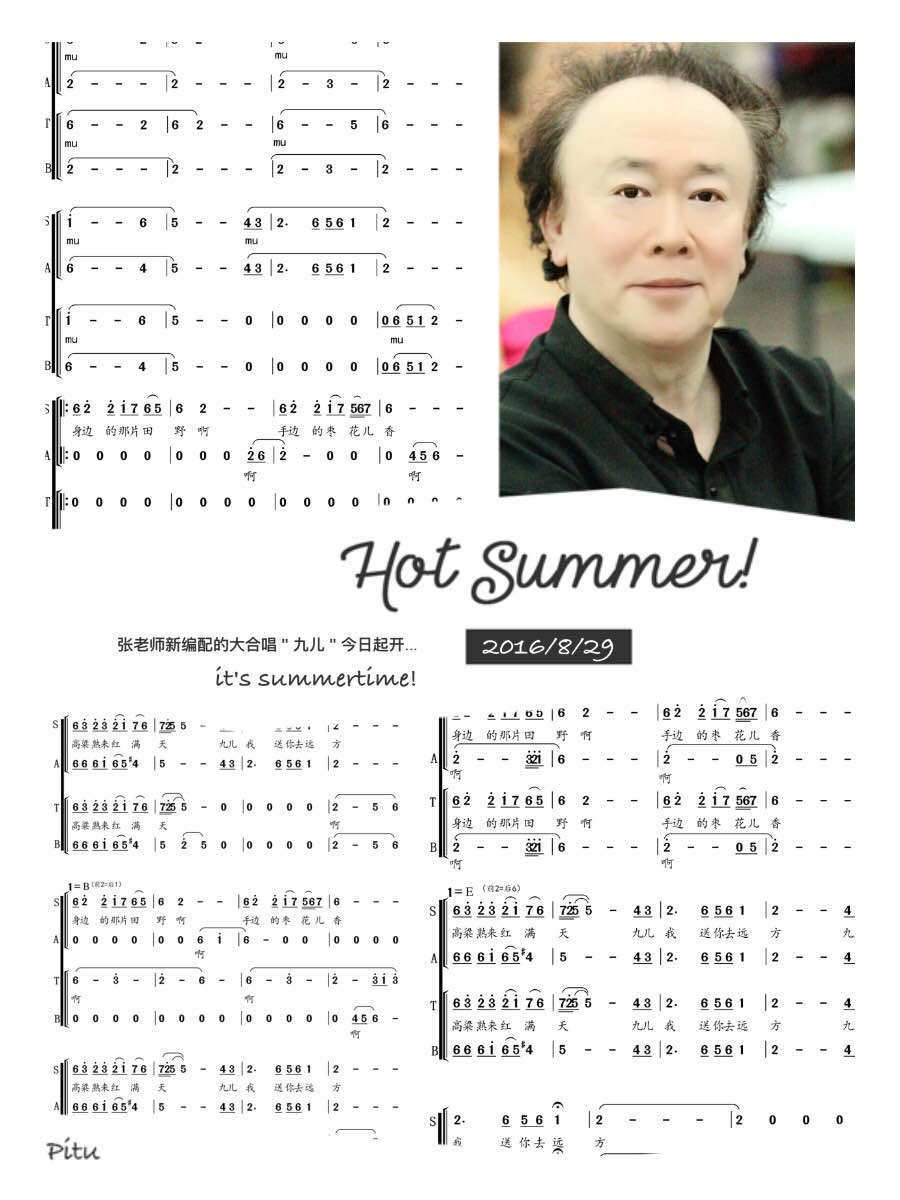 mu mu
A 2 - - - | 2 - - - | 2 - 3 - | 2 -
T 6 - - 2 | 6 2 - - | 6 - - 5 | 6 -
mu mu
B 2 - - - | 2 - - - | 2 - 3 - | 2 -
S i - - 6 | 5 - - 4 3 | 2. 6 5 6 1 | 2 - - -
mu
A 6 - - 4 | 5 - - 4 3 | 2. 6 5 6 1 | 2 - - -
T i - - 6 | 5 - - 0 | 0 0 0 0 | 0 6 5 1 2 -
mu mu
B 6 - - 4 | 5 - - 0 | 0 0 0 0 | 0 6 5 1 2 -
S 6 2 2 1 7 6 5 | 6 2 - - | 6 2 2 1 7 5 6 7 | 6 - - -
身边 的那片田 野啊 手边 的枣 花儿 香
A 0 0 0 0 | 0 0 0 2 6 | 2 - 0 0 | 0 4 5 6 -
啊 啊
T 0 0 0 0 | 0 0 0 0 | 0 0 0 0
Hot Summer!
张老师新编配的大合唱＂九儿＂今日起开...
2016/8/29
it's summertime!
S 6 3 2 3 2 1 7 6 | 7 2 5 5 -
高粱熟来红 满 天 九儿 我 送你去远 方
A 6 6 6 i 6 5 #4 | 5 - - 4 3 | 2. 6 5 6 1 | 2 - - -
T 6 3 2 3 2 1 7 6 | 7 2 5 5 - 0 | 0 0 0 0 | 2 - 5 6
高粱熟来红 满 天 啊
B 6 6 6 i 6 5 #4 | 5 2 5 0 | 0 0 0 0 | 2 - 5 6
1=B (前2=后1)
S 6 2 2 1 7 6 5 | 6 2 - - | 6 2 2 1 7 5 6 7 | 6 - - -
身边 的那片田 野啊 手边 的枣 花儿 香
A 0 0 0 0 | 0 0 6 i | 6 - 0 0 | 0 0 0 0
啊
T 6 - 3 - | 2 - 6 - | 6 - 3 - | 2 - 3 i 3
啊 啊
B 0 0 0 0 | 0 0 0 0 | 0 0 0 0 | 0 4 5 6 -
啊
S 6 3 2 3 2 1 7 6 | 7 2 5 5 - 4 3 | 2. 6 5 6 1 | 2 - - -
高粱熟来红 满 天 九儿 我 送你去远 方
A 6 6 6 i 6 5 #4 | 5 - - 4 3 | 2. 6 5 6 1 | 2 - - -
6 2 - - | 6 2 2 1 7 5 6 7 | 6 - - -
身边 的那片田 野啊 手边 的枣 花儿 香
A 2 - - 3 2 1 | 6 - - - | 2 - - 0 5 | 2 - - -
啊 啊
T 6 2 2 1 7 6 5 | 6 2 - - | 6 2 2 1 7 5 6 7 | 6 - - -
身边 的那片田 野啊 手边 的枣 花儿 香
B 2 - - 3 2 1 | 6 - - - | 2 - - 0 5 | 2 - - -
啊 啊
1=E (前2=后6)
S 6 3 2 3 2 1 7 6 | 7 2 5 5 - 4 3 | 2. 6 5 6 1 | 2 - - 4
高粱熟来红 满 天 九儿 我 送你去远 方 九
A 6 6 6 i 6 5 #4 | 5 - - 4 3 | 2. 6 5 6 1 | 2 - - 4
T 6 3 2 3 2 1 7 6 | 7 2 5 5 - 4 3 | 2. 6 5 6 1 | 2 - - 4
高粱熟来红 满 天 九儿 我 送你去远 方 九
B 6 6 6 i 6 5 #4 | 5 - - 4 3 | 2. 6 5 6 1 | 2 - - 4
S 2. 6 5 6 1 | 2 - - - | 2 0 0 0
我 送你去远 方
Pitu